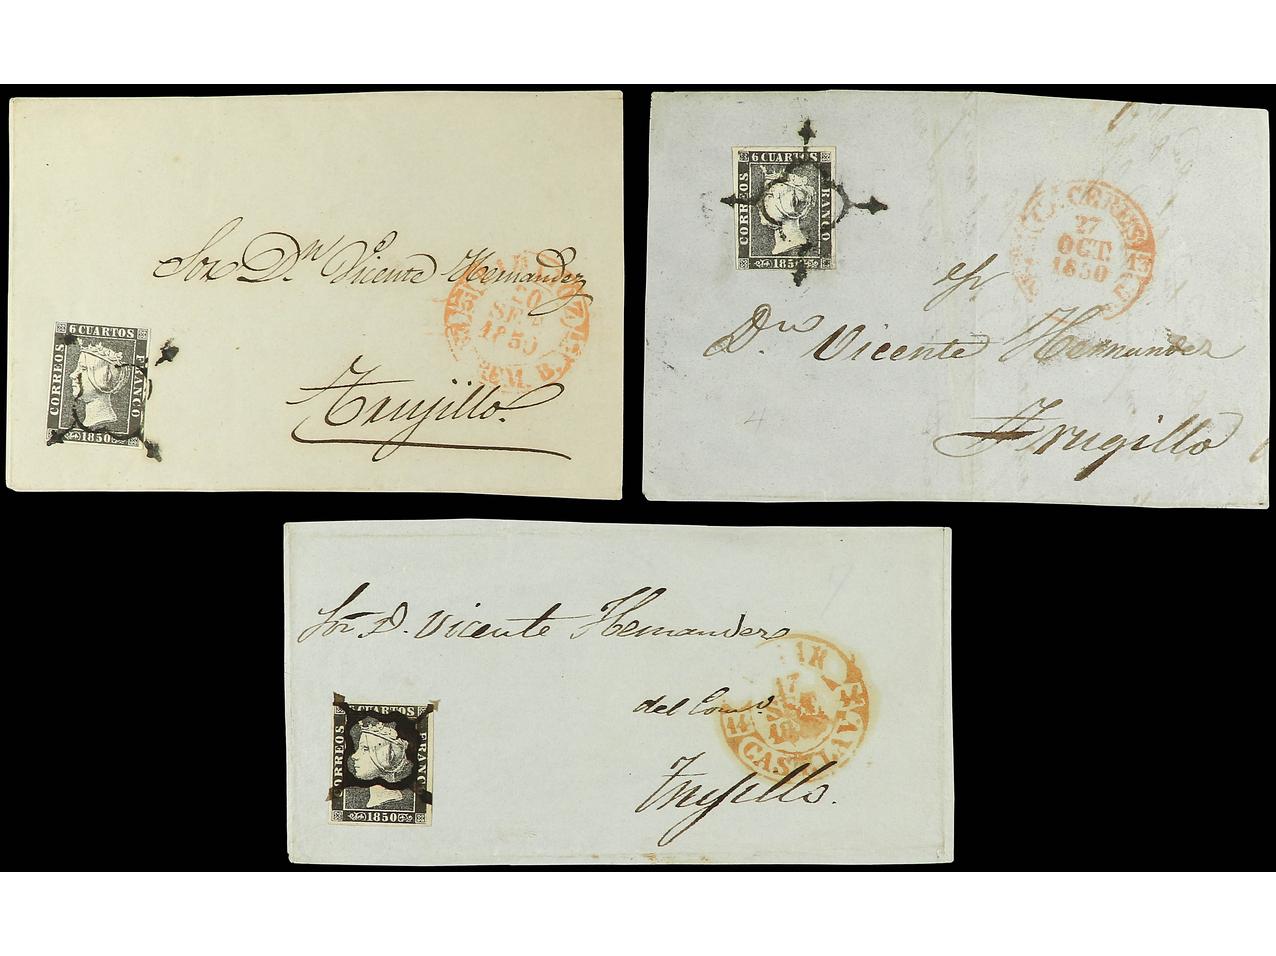 Sor Dn Vicente Hernandez
Trujillo.
6 CUARTOS
CORREOS
FRANCO
1850
20
SET.
1850
6 CUARTOS
CORREOS
FRANCO
1850
CACERES
27
OCT.
1850
Dn Vicente Hernandez
Trugillo
Sor D. Vicente Hernandez
del Como
Trujillo.
6 CUARTOS
CORREOS
FRANCO
1850
17
SET.
14
CAST.LA V.